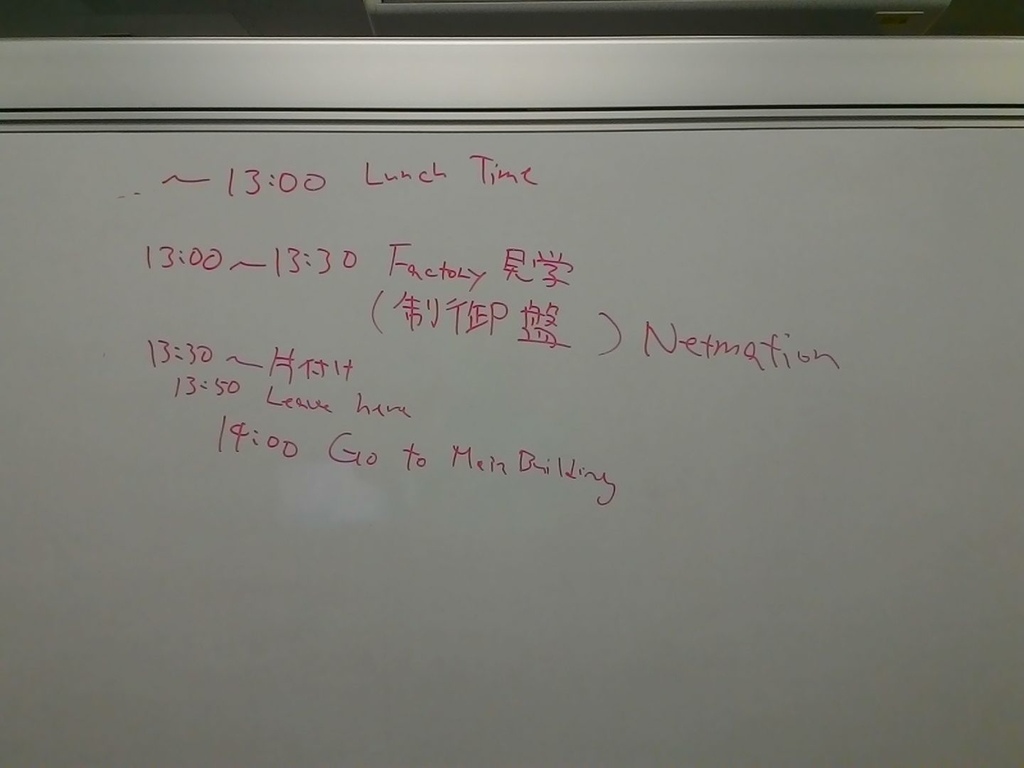 ～13:00 Lunch Time
13:00～13:30 Factory 見学
(制御盤) Netmation
13:30～片付け
13:50 Leave here
14:00 Go to Main Building